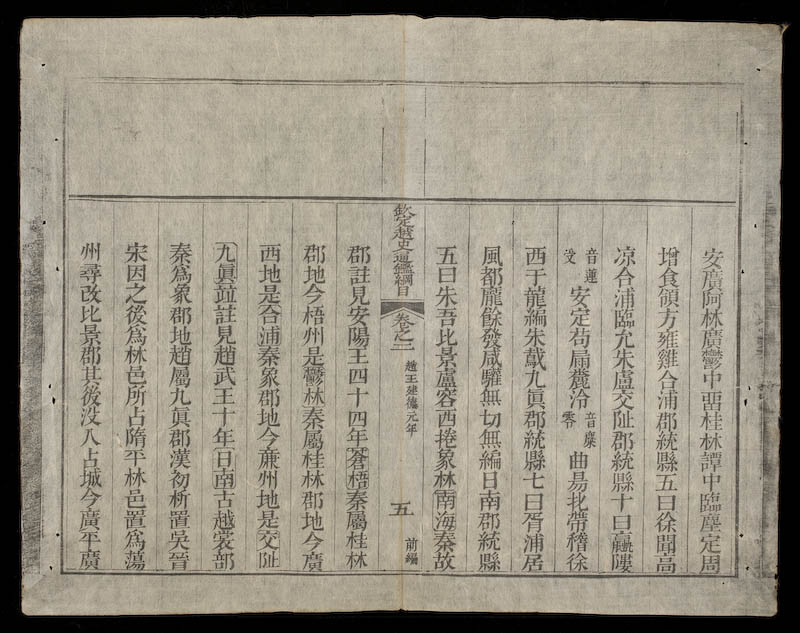 安廣阿林廣鬱中畱桂林譚中臨塵定周
增食領方雍雞合浦郡統縣五曰徐聞高
凉合浦臨允朱盧交趾郡統縣十曰羸𨻻
音蓮
受 安定苟扇麓泠 音麋
零 曲昜北帶稽徐
西于龍編朱䳒九眞郡統縣七曰胥浦居
風都龐餘發咸驩無切無編日南郡統縣
五曰朱吾比景盧容西捲象林南海秦故
欽定越史通鑑綱目 卷之二 趙王建德元年 五 前編
郡註見安陽王四十四年蒼梧秦屬桂林
郡地今梧州是鬱林秦屬桂林郡地今廣
西地是合浦秦象郡地今亷州地是交趾
九眞竝註見趙武王十年日南古越裳部
秦爲象郡地趙屬九眞郡漢初析置吳晉
宋因之後爲林邑所占隋平林邑置爲蕩
州尋改比景郡其後没入占城今廣平廣